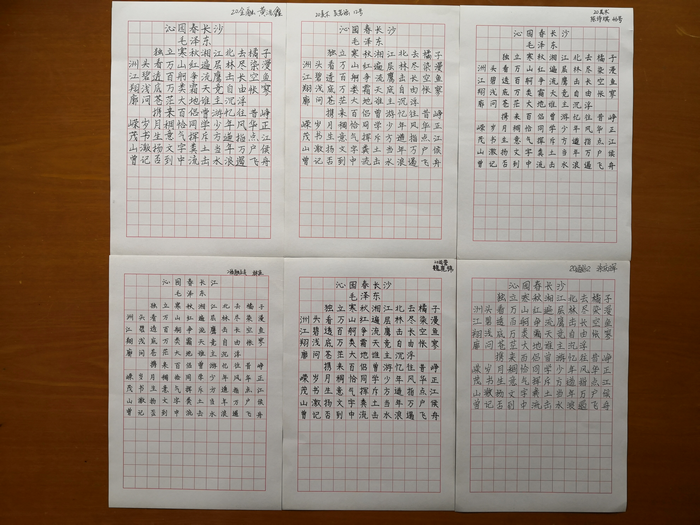 22金融
沁园春长沙
毛泽东
独立寒秋湘江北去橘子
洲头看万山红遍层林尽染漫
江碧透百舸争流鹰击长空鱼
翔浅底万类霜天竞自由怅寥
廓问苍茫大地谁主沉浮
携来百侣曾游忆往昔峥
嵘岁月稠恰同学少年风华正
茂书生意气挥斥方遒指点江
山激扬文字粪土当年万户侯
曾记否到中流击水浪遏飞舟
沁园春长沙
毛泽东
独立寒秋湘江北去橘子
洲头看万山红遍层林尽染漫
江碧透百舸争流鹰击长空鱼
翔浅底万类霜天竞自由怅寥
廓问苍茫大地谁主沉浮
携来百侣曾游忆往昔峥
嵘岁月稠恰同学少年风华正
茂书生意气挥斥方遒指点江
山激扬文字粪土当年万户侯
曾记否到中流击水浪遏飞舟
沁园春长沙
毛泽东
独立寒秋湘江北去橘子
洲头看万山红遍层林尽染漫
江碧透百舸争流鹰击长空鱼
翔浅底万类霜天竞自由怅寥
廓问苍茫大地谁主沉浮
携来百侣曾游忆往昔峥
嵘岁月稠恰同学少年风华正
茂书生意气挥斥方遒指点江
山激扬文字粪土当年万户侯
曾记否到中流击水浪遏飞舟
沁园春长江
毛泽东
独立寒秋湘江北去橘子
洲头看万山红遍层林尽染漫
江碧透百舸争流鹰击长空鱼
翔浅底万类霜天竞自由怅寥
廓问苍茫大地谁主沉浮
携来百侣曾游忆往昔峥
嵘岁月稠恰同学少年风华正
茂书生意气挥斥方遒指点江
山激扬文字粪土当年万户侯
曾记否到中流击水浪遏飞舟
沁园春长沙
毛泽东
独立寒秋湘江北去橘子
洲头看万山红遍层林尽染漫
江碧透百舸争流鹰击长空鱼
翔浅底万类霜天竞自由怅寥
廓问苍茫大地谁主沉浮
携来百侣曾游忆往昔峥
嵘岁月稠恰同学少年风华正
茂书生意气挥斥方遒指点江
山激扬文字粪土当年万户侯
曾记否到中流击水浪遏飞舟
沁园春长沙
毛泽东
独立寒秋湘江北去橘子
洲头看万山红遍层林尽染漫
江碧透百舸争流鹰击长空鱼
翔浅底万类霜天竞自由怅寥
廓问苍茫大地谁主沉浮
携来百侣曾游忆往昔峥
嵘岁月稠恰同学少年风华正
茂书生意气挥斥方遒指点江
山激扬文字粪土当年万户侯
曾记否到中流击水浪遏飞舟